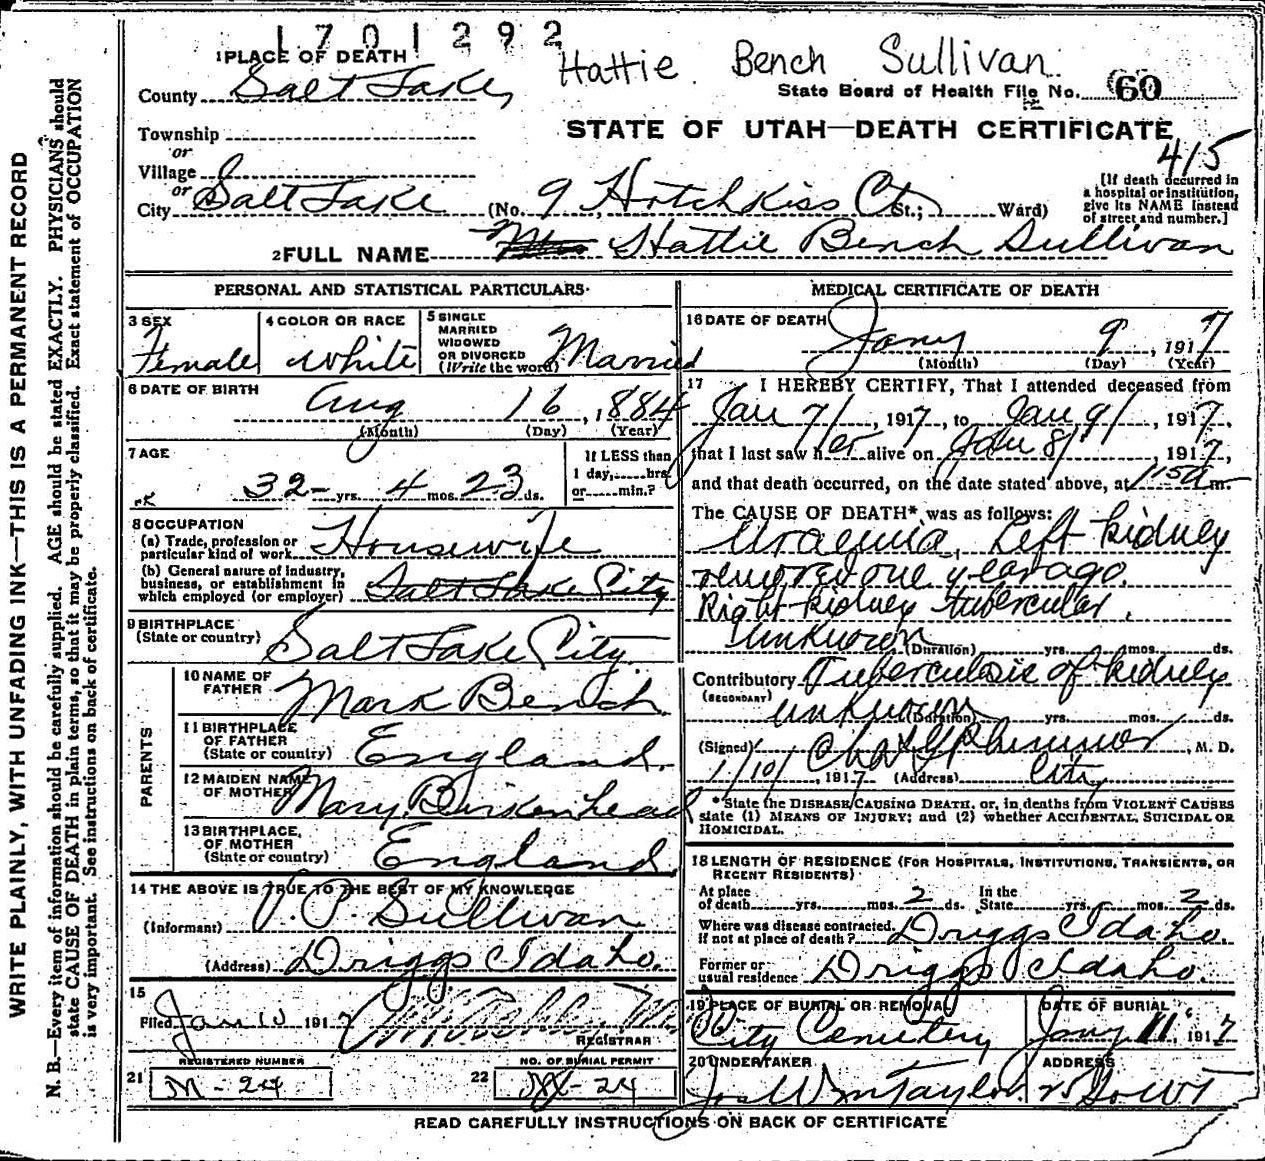 1701292
1 PLACE OF DEATH
Hattie Bench Sullivan
County Salt Lake
State Board of Health File No. 60
Township
or
Village
or
City Salt Lake
STATE OF UTAH—DEATH CERTIFICATE
415
(No. 9 Hotchkiss Ct. St.; Ward)
[If death occurred in
a hospital or institution,
give its NAME instead
of street and number.]
2 FULL NAME Hattie Bench Sullivan
PERSONAL AND STATISTICAL PARTICULARS
3 SEX
Female
4 COLOR OR RACE
White
5 SINGLE
MARRIED
WIDOWED
OR DIVORCED
(Write the word)
Married
6 DATE OF BIRTH
Aug 16, 1884
(Month) (Day) (Year)
7 AGE
32 yrs. 4 mos. 23 ds.
If LESS than
1 day, hrs.
or min.?
8 OCCUPATION
(a) Trade, profession or
particular kind of work Housewife
(b) General nature of industry,
business, or establishment in
which employed (or employer) Salt Lake City
9 BIRTHPLACE
(State or country) Salt Lake City
PARENTS
10 NAME OF
FATHER Mark Bench
11 BIRTHPLACE
OF FATHER
(State or country) England.
12 MAIDEN NAME
OF MOTHER Mary Birkenhead
13 BIRTHPLACE,
OF MOTHER
(State or country) England.
14 THE ABOVE IS TRUE TO THE BEST OF MY KNOWLEDGE
(Informant) V. P. Sullivan
(Address) Driggs Idaho.
15
Filed Jan 10 1917
REGISTRAR
REGISTERED NUMBER
21 M-24
NO. OF BURIAL PERMIT
22 M-24
MEDICAL CERTIFICATE OF DEATH
16 DATE OF DEATH
Jany 9, 1917
(Month) (Day) (Year)
17 I HEREBY CERTIFY, That I attended deceased from
Jan 7/, 1917, to Jan 9/, 1917,
that I last saw her alive on Jan 8/, 1917,
and that death occurred, on the date stated above, at 115a m.
The CAUSE OF DEATH* was as follows:
Uraemia, Left kidney
removed one year ago.
Right kidney tubercular.
Unknown (Duration) yrs. mos. ds.
Contributory Tuberculosis of kidney
(SECONDARY)
unknown (Duration) yrs. mos. ds.
(Signed) M. D.
1/10/, 1917 (Address) City
*State the DISEASE CAUSING DEATH, or, in deaths from VIOLENT CAUSES
state (1) MEANS OF INJURY; and (2) whether ACCIDENTAL, SUICIDAL OR
HOMICIDAL.
18 LENGTH OF RESIDENCE (FOR HOSPITALS, INSTITUTIONS, TRANSIENTS, OR
RECENT RESIDENTS)
At place
of death yrs. mos. 2 ds.
In the
State yrs. mos. 2 ds.
Where was disease contracted,
If not at place of death? Driggs Idaho.
Former or
usual residence Driggs Idaho.
19 PLACE OF BURIAL OR REMOVAL
City Cemetery
DATE OF BURIAL
Jany 11, 1917
20 UNDERTAKER
Jos Wm Taylor
ADDRESS
READ CAREFULLY INSTRUCTIONS ON BACK OF CERTIFICATE
WRITE PLAINLY, WITH UNFADING INK—THIS IS A PERMANENT RECORD
N. B.—Every item of information should be carefully supplied. AGE should be stated EXACTLY. PHYSICIANS should
state CAUSE OF DEATH in plain terms, so that it may be properly classified. Exact statement of OCCUPATION
is very important. See instructions on back of certificate.